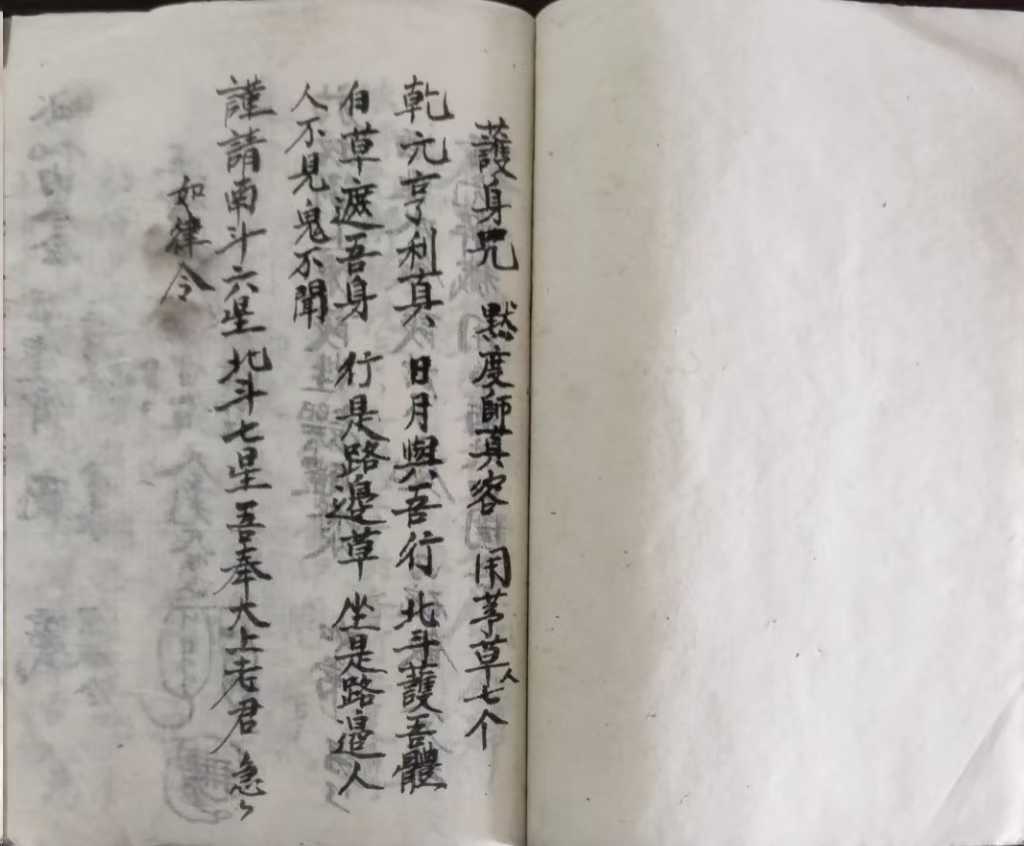 護身咒 黙度師真容 用茅草人七个
乾元亨利真 日月與吾行 北斗護吾體
白草遮吾身 行是路邊草 坐是路邉人
人不見鬼不聞
謹請南斗六星北斗七星吾奉大上老君急〻
如律令